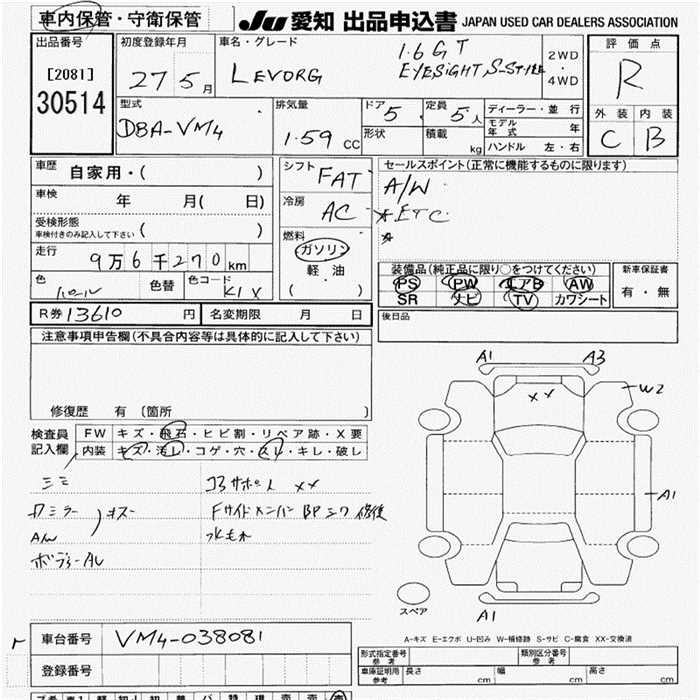 車内保管・守衛保管 JU 愛知 出品申込書 JAPAN USED CAR DEALERS ASSOCIATION
出品番号 初度登録年月 車名・グレード 評価点
[2081] 27 5月 LEVORG 1.6GT 2WD・4WD R
30514 EYESIGHT S-STYLE
型式 排気量 ドア 5 定員 5人 ディーラー・並行 外装 内装
DBA-VM4 1.59 CC 形状 積載 kg モデル年式 年 C B
ハンドル 左・右
車歴 自家用・( ) シフト FAT セールスポイント(正常に機能するものに限ります)
車検 年 月( 日) 冷房 AC A/W
受検形態 車検付きのみ記入して下さい ( ) ETC
走行 9万6千270km 燃料 ガソリン 軽油 ( )
装備品(純正品に限り○をつけてください) 新車保証書
色 パール 色替 色コード K1X PS PW エアB AW 有・無
SR ナビ TV カワシート
R券 13610 円 名変期限 月 日 後日品
注意事項申告欄(不具合内容等は具体的に記入して下さい)
修復歴 有 〔箇所 〕
検査員記入欄 FW キズ・飛石・ヒビ割・リペア跡・X要
内装 キズ・汚レ・コゲ・穴・スレ・キレ・破レ
A1 A3
XX
W2
A1
A1
コアサポート XX
Fサイドメンバー
修復
カミラー キズ
A/W
スペア
A-キズ E-エクボ U-凹み W-補修跡 S-サビ C-腐食 XX-交換済
車台番号 VM4-038081
登録番号
型式指定番号 参考 類別区分番号 参考
車庫証明用 参考 長さ cm 幅 cm 高さ cm